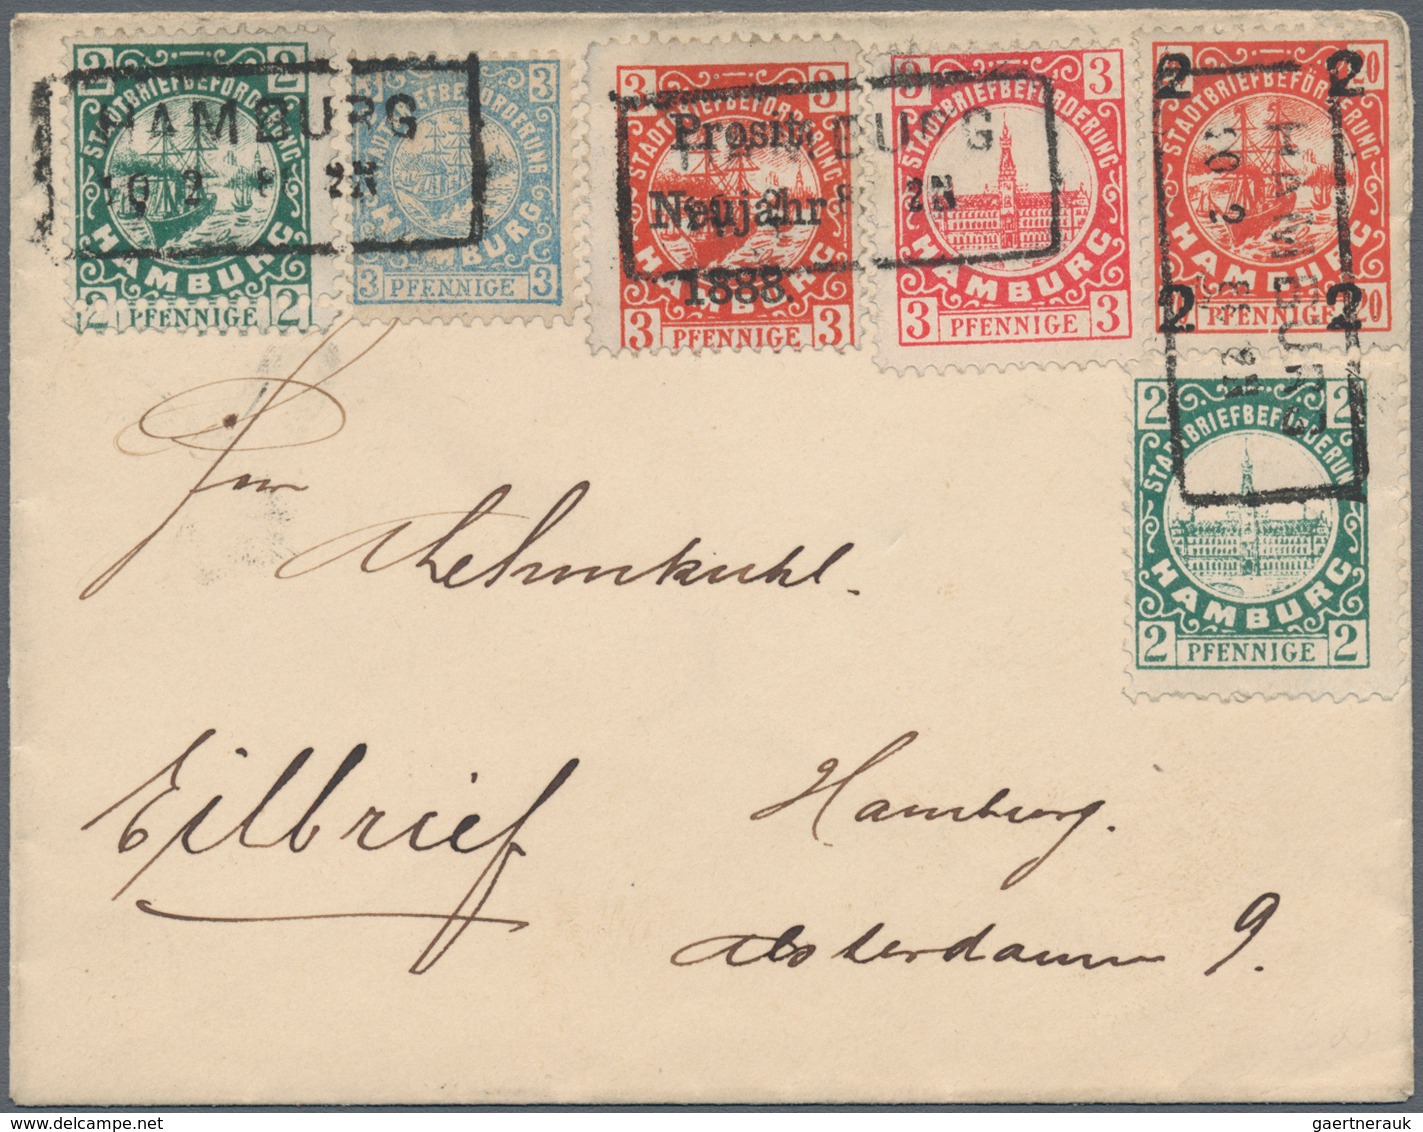 2 2
STADTBRIEFBEFÖRDERUNG
HAMBURG
2 PFENNIGE 2
3
STADTBRIEFBEFÖRDERUNG
HAMBURG
3 PFENNIGE 3
HAMBURG
10 2 2N
3 3
STADTBRIEFBEFÖRDERUNG
Prosit
Neujahr
1888.
HAMBURG
3 PFENNIGE 3
3 3
STADTBRIEFBEFÖRDERUNG
HAMBURG
3 PFENNIGE 3
HAMBURG
2N
2 2 20
STADTBRIEFBEFÖRDERUNG
HAMBURG
2 PFENNIGE 2 20
HAMBURG
10 2 2N
2 2
STADTBRIEFBEFÖRDERUNG
HAMBURG
2 PFENNIGE 2
Eilbrief
Hamburg.
Alsterdamm 9.
gaertnerauk